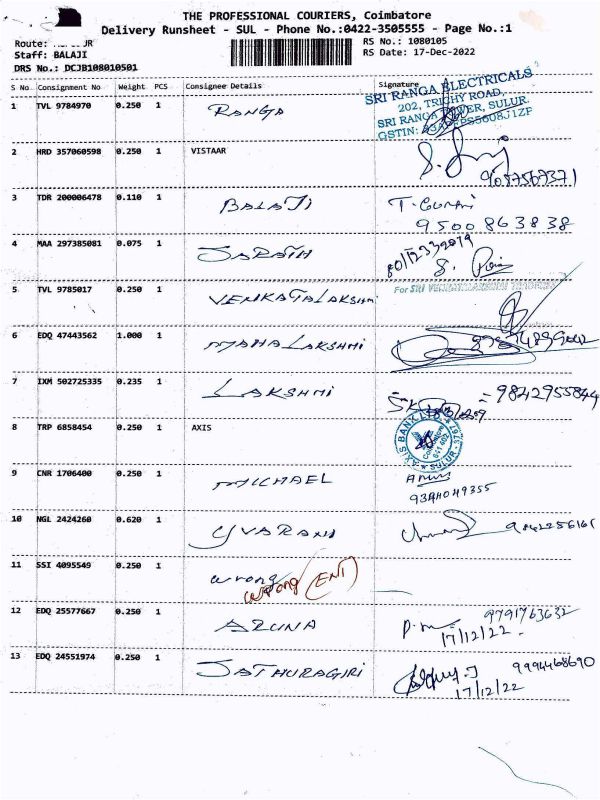 THE PROFESSIONAL COURIERS, Coimbatore
Delivery Runsheet - SUL - Phone No.:0422-3505555 - Page No.:1
Route: UR
RS No.: 1080105
Staff: BALAJI
RS Date: 17-Dec-2022
DRS No.: DCJB108010501
S No Consignment No Weight PCS Consignee Details Signature
1 TVL 9784970 0.250 1 RANGA
SRI RANGA ELECTRICALS
202, TRICHY ROAD,
SRI RANGA TOWER, SULUR
GSTIN:
2 HRD 357060598 0.250 1 VISTAAR
9057567371
3 TDR 200006478 0.110 1 BALAJI
9500863838
4 MAA 297385081 0.075 1 SARATH
5 TVL 9785017 0.250 1 VENKATALAKSHMI
For SRI
6 EDQ 47443562 1.000 1 MAHALAKSHMI
7 IXM 502725335 0.235 1 LAKSHMI
= 9842955844
8 TRP 6858454 0.250 1 AXIS
AXIS BANK LTD
SULUR
9 CNR 1706400 0.250 1 MICHAEL
10 NGL 2424260 0.620 1 YVARANI
11 SSI 4095549 0.250 1 wrong
wrong (ENT)
12 EDQ 25577667 0.250 1 ARUNA
9791763632
17/12/22.
13 EDQ 24551974 0.250 1 SATHURAGIRI
9994468690
17/12/22